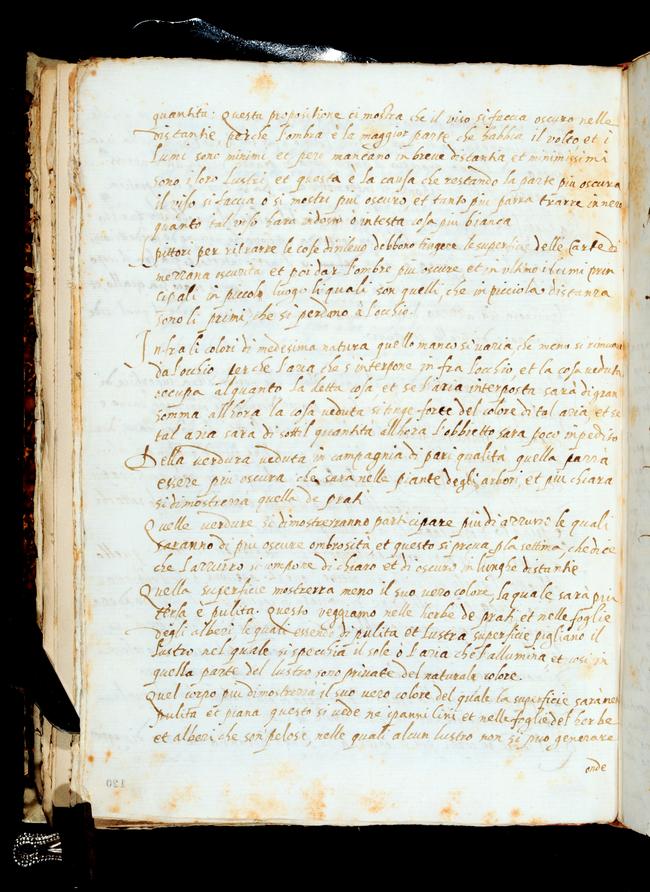 quantita: Questa propositione ci mostra che il viso si faccia oscuro nelle
distantie, perche l'ombra è la maggior parte che habbia il volto et i
lumi sono minimi et però mancano in breve distantia et minimissimi
sono i loro lustri, et questa è la causa che restando la parte più oscura
il viso si faccia o si mostri più oscuro et tanto più parrà trarre in nero
quanto tal viso harà indosso o intesta cosa più bianca
pittori per ritrarre le cose di rilievo debbono tingere le superficie delle Carte di
mezzana oscurità et poi dar l'ombre più oscure et in ultimo i lumi prin
cipali in piccolo luogo li quali son quelli, che in picciola distanza
sono li primi, che si perdano à l'occhio.
Infra li colori di medesima natura quello manco si varia, che meno si rimuove
da l'occhio perche l'aria che s'interpone in fra l'occhio, et la cosa veduta
occupa alquanto la detta cosa, et se l'aria interposta sarà di gran
somma allhora la cosa veduta si tinge forte del colore di tal aria, et se
tal aria sarà di sottil quantita allhora l'obbietto sara poco impedito
Della verdura veduta in campagnia di pari qualità quella parrà
essere più oscura che sarà nelle piante degli arbori, et più chiara
si dimostrerra quella de prati
Quelle verdure si dimostreranno participare più di azzurro le quali
saranno di più oscure ombrosità et questo si prova p la settima, che dice
che l'azzurro si compone di chiaro et di oscuro in lunghe distantie
Quella superficie mostrerrà meno il suo vero colore, la quale sarà più
tersa e pulita. questo veggiamo nelle herbe de prati, et nelle foglie
degli alberi le quali essendo di pulita et lustra superficie pigliano il
lustro nel quale si specchia il sole ò l'aria che l'allumina et cosi in
quella parte del lustro sono private del naturale colore.
Quel corpo più dimostrerra il suo vero colore del quale la superficie sarà men
pulita et piana questo si vede ne i panni lini et nelle foglie del herbe
et alberi che son pelose, nelle quali alcun lustro non si può generare
onde
120